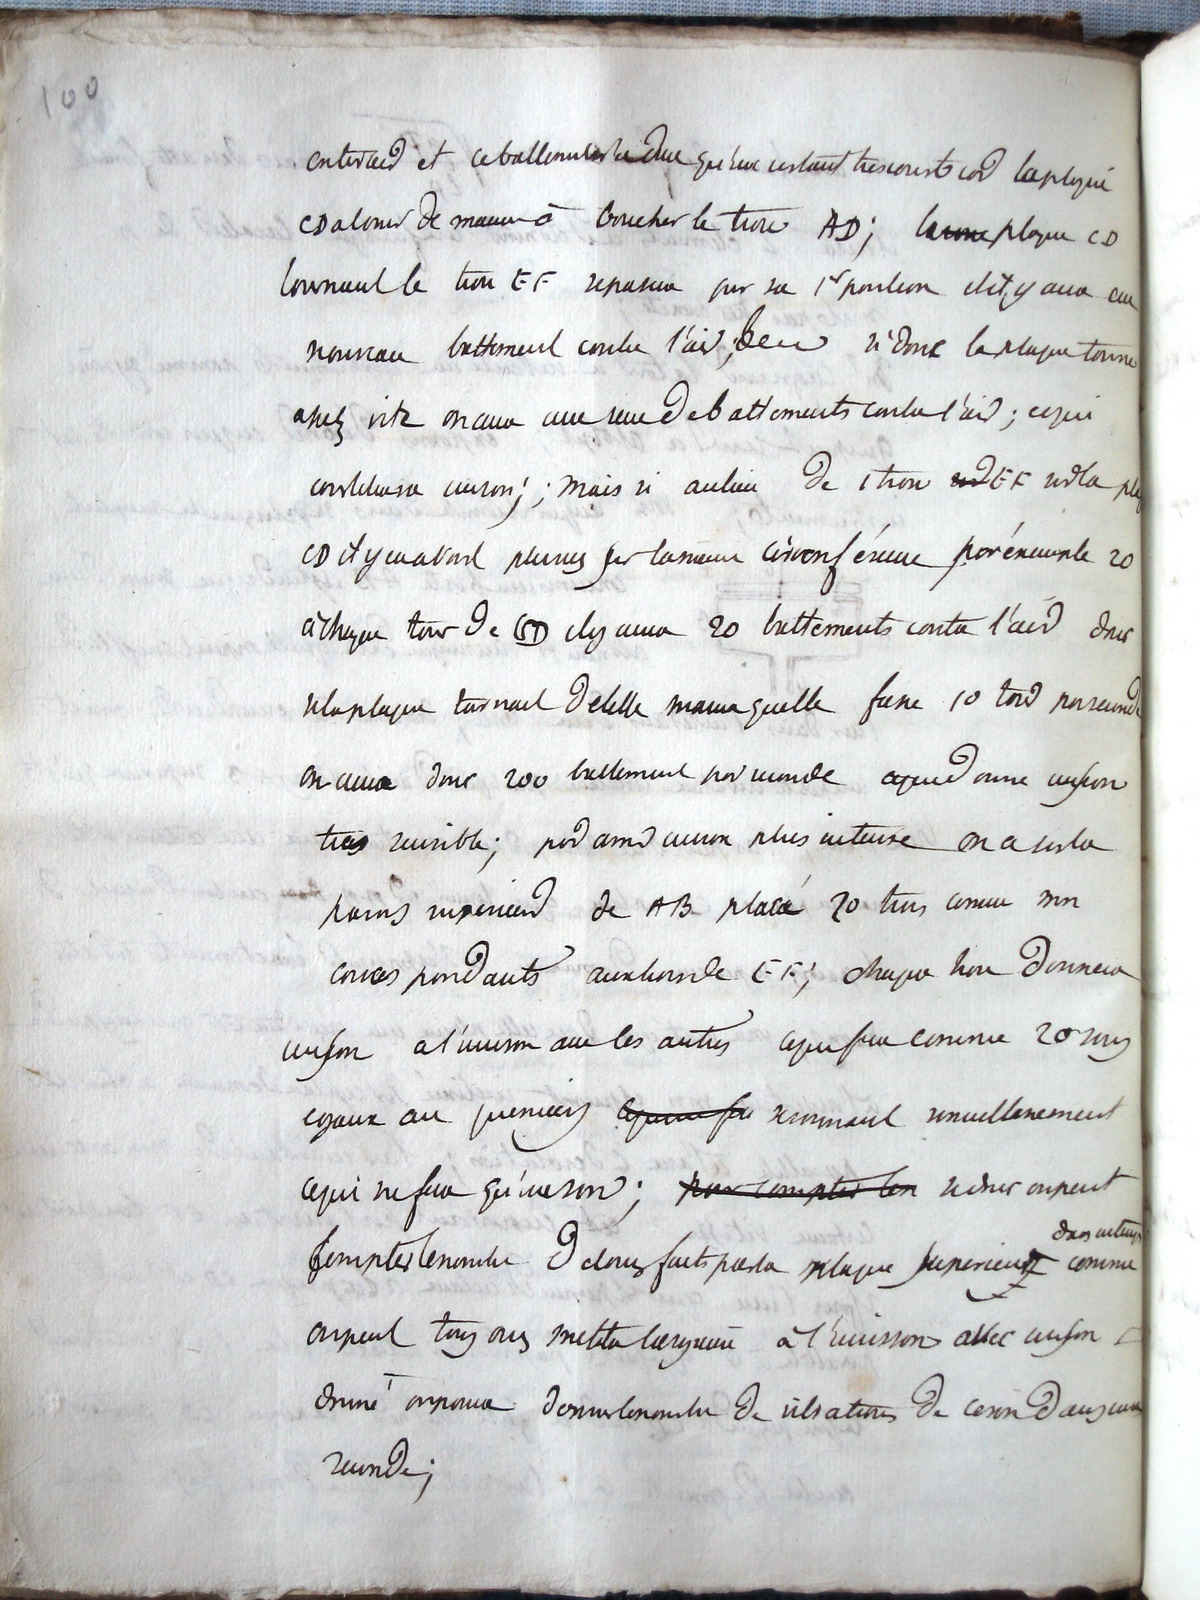 100
contre l'air et ce battement ne dure qu'un instant très court car la plaque
CD a tourné de manière à boucher le trou AD; la plaque CD
tournant le trou EF repassera par sa 1r position et il y aura un
nouveau battement contre l'air; si donc la plaque tourne
assez vite on aura une suite de battements contre l'air; ce qui
constituera un son; mais si au lieu de 1 trou EF sur la pla
CD il y en avait plusieurs sur la même circonférence par exemple 20
à chaque tour de CD il y aura 20 battements contre l'air donc
si la plaque tournait de telle manière qu'elle fasse 10 tours par seconde
on aura donc 200 battement par seconde ce qui donne un son
très sensible; pour avoir un son plus intense on a sur la
parois supérieur de AB placé 20 trous comme
correspondants aux trous de EF; chaque trou donnera
un son a l'unisson avec les autres ce qui fera comme 20 sons
egaux au premiers resonnant simultanement
ce qui ne fera qu'un son; si donc on peut
dans un temps
compter le nombre de tours faits par la plaque supérieur comme
on peut toujours mettre la à l'unisson avec un son
donné on pourra donner le nombre de vibrations de ce son dans une
seconde;